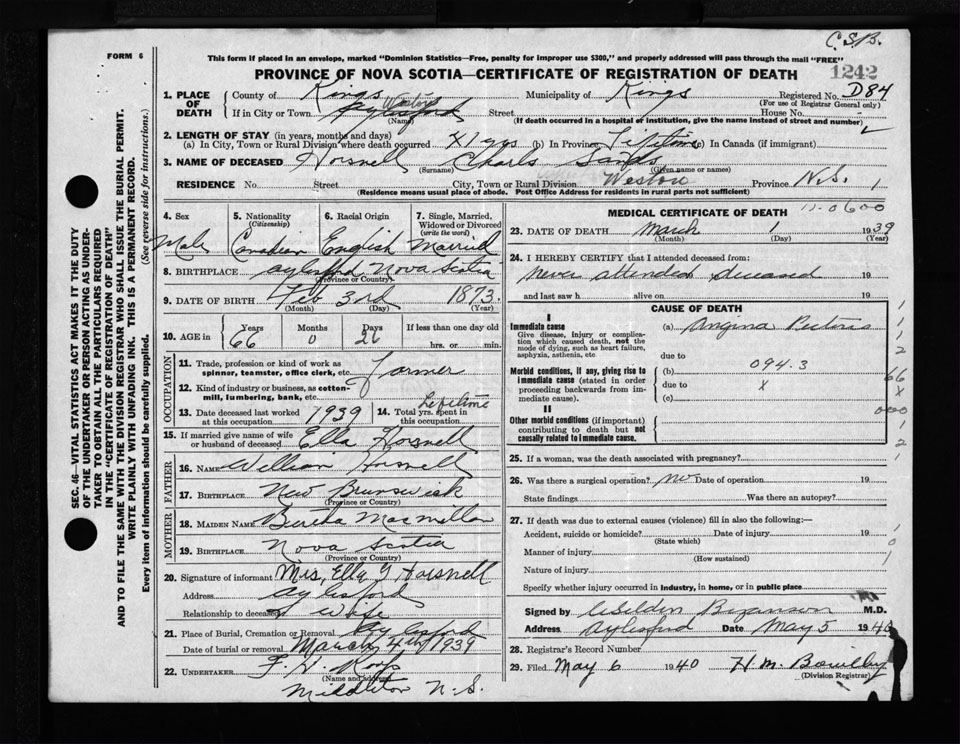 C.S.B.
FORM 6
This form if placed in an envelope, marked "Dominion Statistics—Free, penalty for improper use $300," and properly addressed will pass through the mail "FREE"
PROVINCE OF NOVA SCOTIA—CERTIFICATE OF REGISTRATION OF DEATH
1242
1. PLACE OF DEATH
County of Kings
Municipality of Kings
Registered No. D84
(For use of Registrar General only)
If in City or Town Aylesford Weston
(Name)
Street
House No.
(If death occurred in a hospital or institution, give the name instead of street and number)
2. LENGTH OF STAY (in years, months and days)
(a) In City, Town or Rural Division where death occurred
(b) In Province Lifetime (c) In Canada (if immigrant)
3. NAME OF DECEASED Horsnell Charls Sands
(Surname) (Given name or names)
RESIDENCE No. Street City, Town or Rural Division Weston Province N.S. 1
(Residence means usual place of abode. Post Office Address for residents in rural parts not sufficient)
4. Sex
Male
5. Nationality
(Citizenship)
Canadian
6. Racial Origin
English
7. Single, Married, Widowed or Divorced
(write the word)
Married
8. BIRTHPLACE Aylesford Nova Scotia
(Province or Country)
9. DATE OF BIRTH Feb 3rd 1873
(Month) (Day) (Year)
10. AGE in
Years Months Days If less than one day old
66 0 26 hrs. or min.
OCCUPATION
11. Trade, profession or kind of work as spinner, teamster, office clerk, etc. Farmer
12. Kind of industry or business, as cotton-mill, lumbering, bank, etc.
13. Date deceased last worked at this occupation 1939
14. Total yrs. spent in this occupation Lifetime
15. If married give name of wife or husband of deceased Ella Horsnell
FATHER
16. NAME William Horsnell
17. BIRTHPLACE New Brunswick
(Province or Country)
MOTHER
18. MAIDEN NAME Bertha Macmillan
19. BIRTHPLACE Nova Scotia
(Province or Country)
20. Signature of informant Mrs, Ella Y Horsnell
Address Aylesford
Relationship to deceased Wife
21. Place of Burial, Cremation or Removal Aylesford
Date of burial or removal March 4th 1939
22. UNDERTAKER F. H. Roop
(Name and address)
Middleton N.S.
MEDICAL CERTIFICATE OF DEATH
23. DATE OF DEATH March 1 1939
(Month) (Day) (Year)
24. I HEREBY CERTIFY that I attended deceased from:
never attended deceased 19
and last saw h alive on 19
CAUSE OF DEATH
I
Immediate cause
Give disease, injury or complication which caused death, not the mode of dying, such as heart failure, asphyxia, asthenia, etc
(a) Angina Pectoris
due to
Morbid conditions, if any, giving rise to immediate cause (stated in order proceeding backwards from immediate cause).
(b) 094.3
due to X
(c)
II
Other morbid conditions (if important) contributing to death but not causally related to immediate cause.
25. If a woman, was the death associated with pregnancy?
26. Was there a surgical operation? no Date of operation 19
State findings Was there an autopsy?
27. If death was due to external causes (violence) fill in also the following:—
Accident, suicide or homicide? Date of injury 19
(State which)
Manner of injury
(How sustained)
Nature of injury
Specify whether injury occurred in industry, in home, or in public place
Signed by M.D.
Address Aylesford Date May 5 1940
28. Registrar's Record Number
29. Filed May 6 1940 H. M. Bowlby
(Division Registrar)
SEC. 46—VITAL STATISTICS ACT MAKES IT THE DUTY
OF THE UNDERTAKER OR PERSON ACTING AS UNDERTAKER
TO OBTAIN ALL THE PARTICULARS REQUIRED
IN THE "CERTIFICATE OF REGISTRATION OF DEATH"
AND TO FILE THE SAME WITH THE DIVISION REGISTRAR WHO SHALL ISSUE THE BURIAL PERMIT.
WRITE PLAINLY WITH UNFADING INK. THIS IS A PERMANENT RECORD.
Every item of information should be carefully supplied. (See reverse side for instructions.)